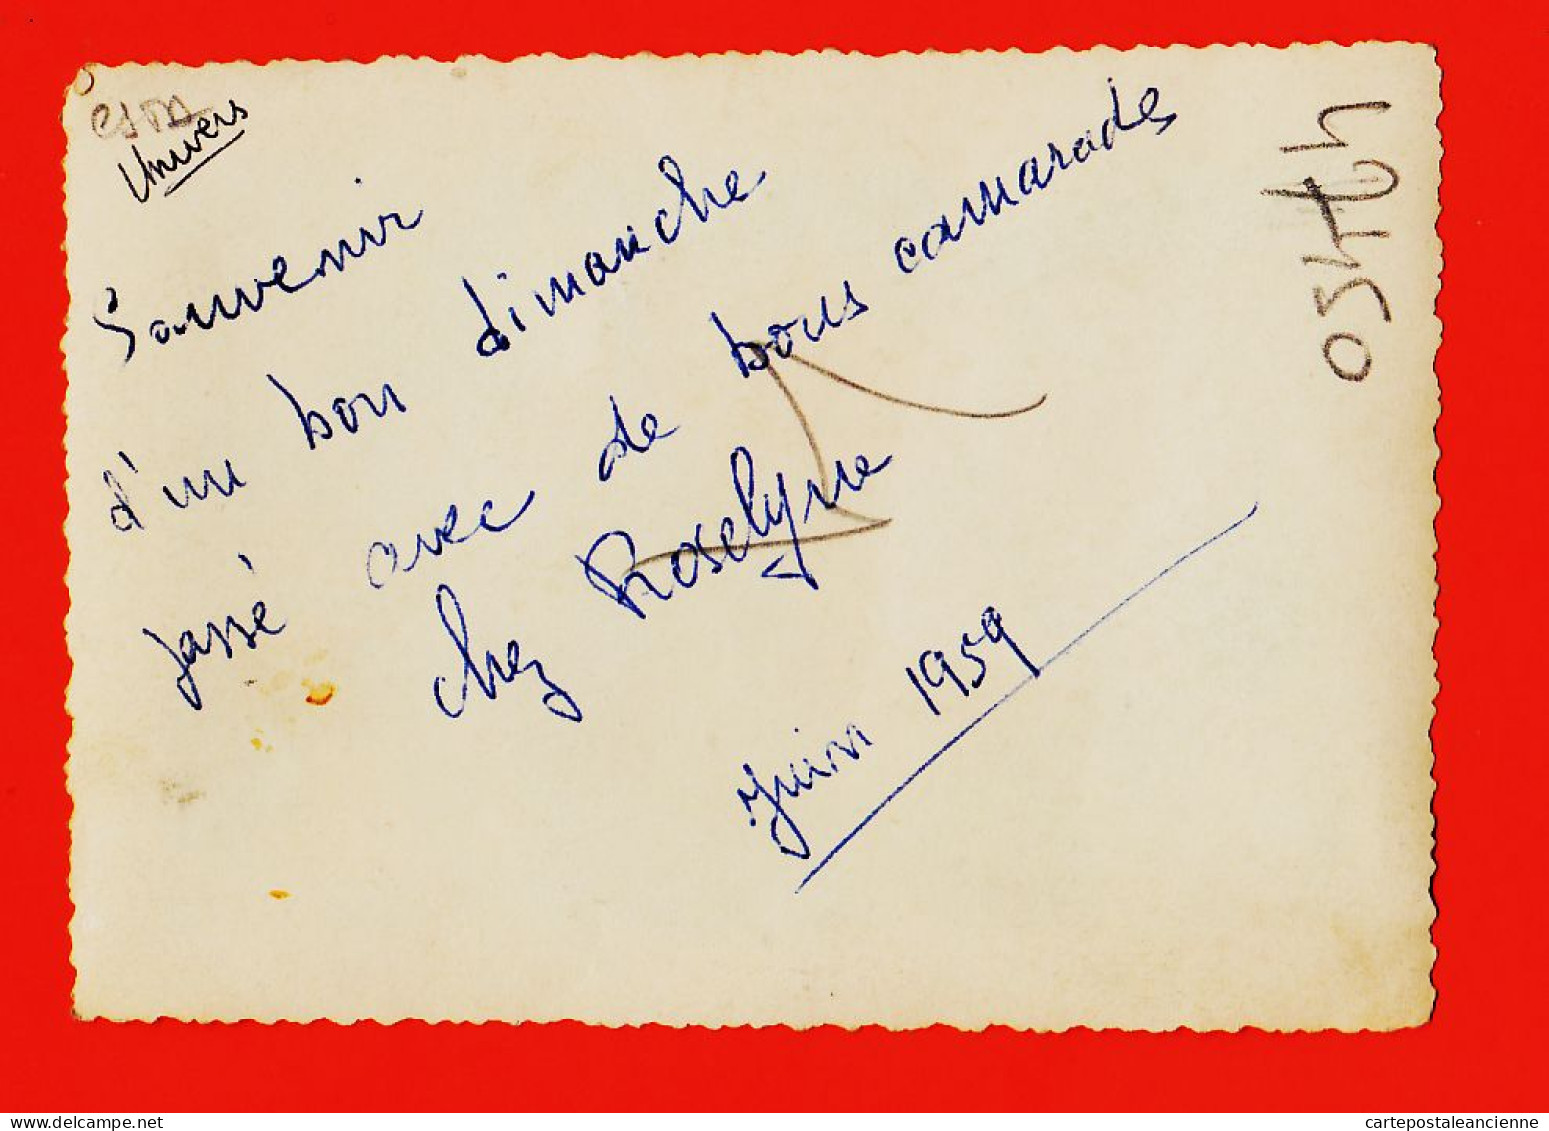 Univers
Souvenir
d'un bon dimanche
passé avec de bons camarades
chez Roselyne
Juin 1959
delcampe.net
cartepostaleancienne